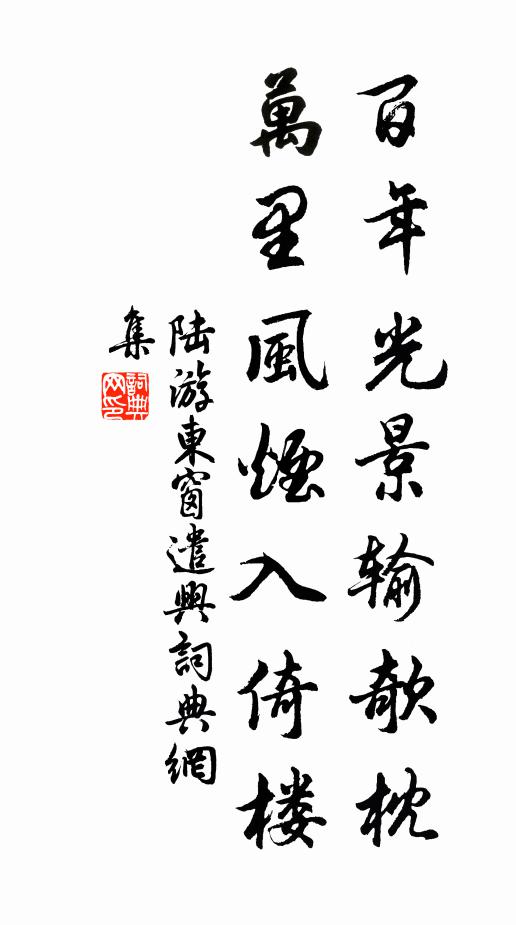 百年光景输欹枕
萬里風煙入倚楼
陆游東窗遣興詞典網
集
詞典网印